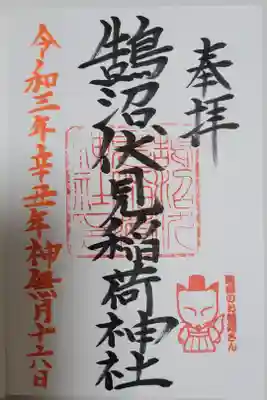 奉拝
鵠沼伏見稲荷神社
令和三年辛丑年神無月十六日